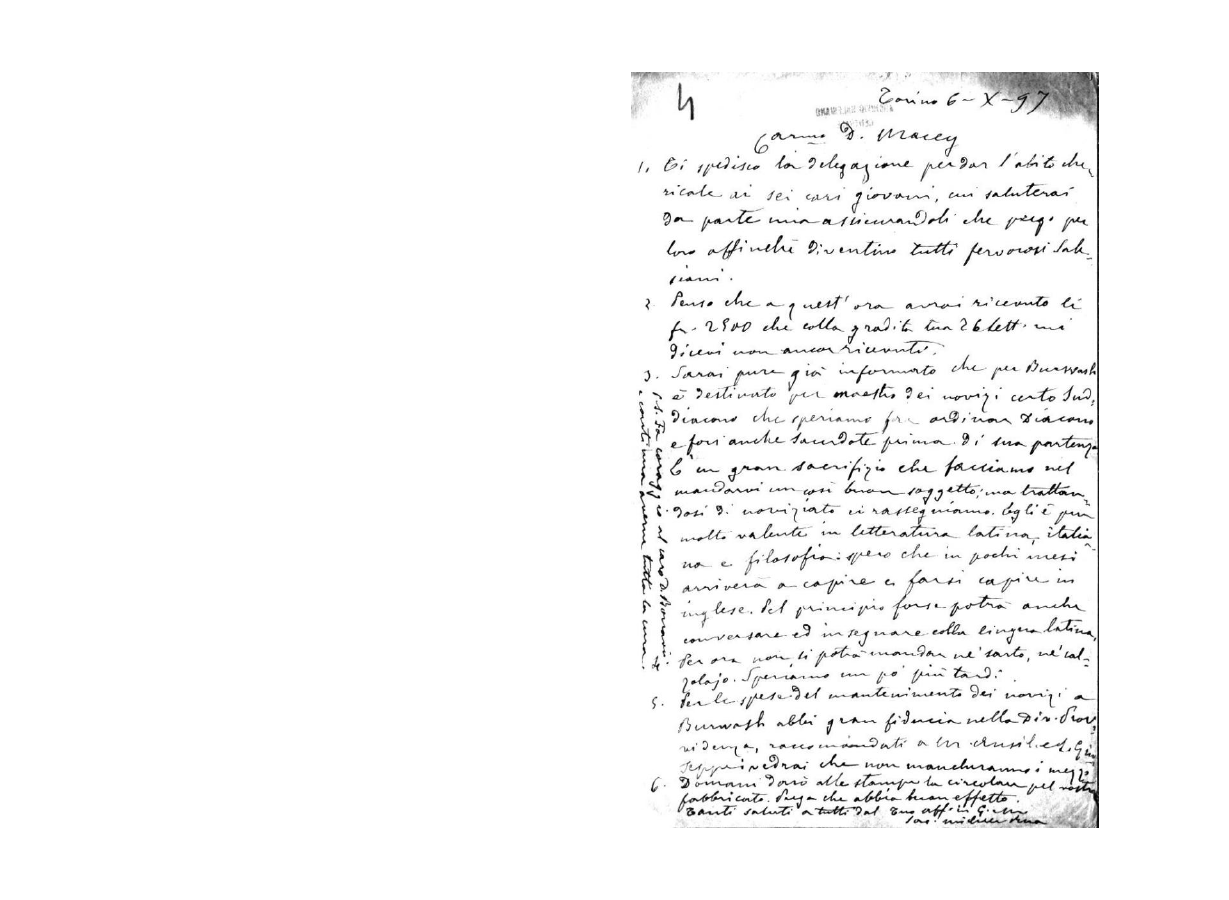 4
Torino 6-X-97
Carmo D. Macey
1. Ti spedisco la delegazione per dar l'abito che-
ricale ai sei cari giovani, cui saluterai
da parte mia assicurandoli che prego per
loro affinchè diventino tutti fervorosi Sale-
siani.
2. Penso che a quest'ora avrai ricevuto li
fr. 2500 che colla gradita tua 26 Sett. mi
dicevi non ancor ricevuti.
3. Sarai pure già informato che per Burwash
è destinato per maestro dei novizi certo Sud-
diacono che speriamo far ordinar Diacono
e forsi anche Sacerdote prima di sua partenza
È un gran sacrifizio che facciamo nel
mandarvi un così buon soggetto; ma trattan-
dosi di noviziato ci rassegniamo. Egli è pur
molto valente in letteratura latina, italia-
na e filosofia: spero che in pochi mesi
arriverà a capire e farsi capire in
inglese. Del principio forse potrà anche
conversare ed insegnare colla lingua latina.
4. Per ora non si potrà mandar nè sarto, nè cal-
zolajo. Speriamo un po' più tardi.
5. Per le spese del mantenimento dei novizi a
Burwash abbi gran fiducia nella Div. Prov-
videnza, raccomandati a M. Ausil. e S. Giu-
seppe: vedrai che non mancheranno i mezzi
6. Domani darò alle stampe la circolare pel vostro
fabbricato. Prega che abbia buon effetto.
Tanti saluti a tutti dal Tuo aff. in G. e M
Sac. Michele Rua
P.S. Fa coraggio al caro D. Bonavia
e continua averne tutta la cura.